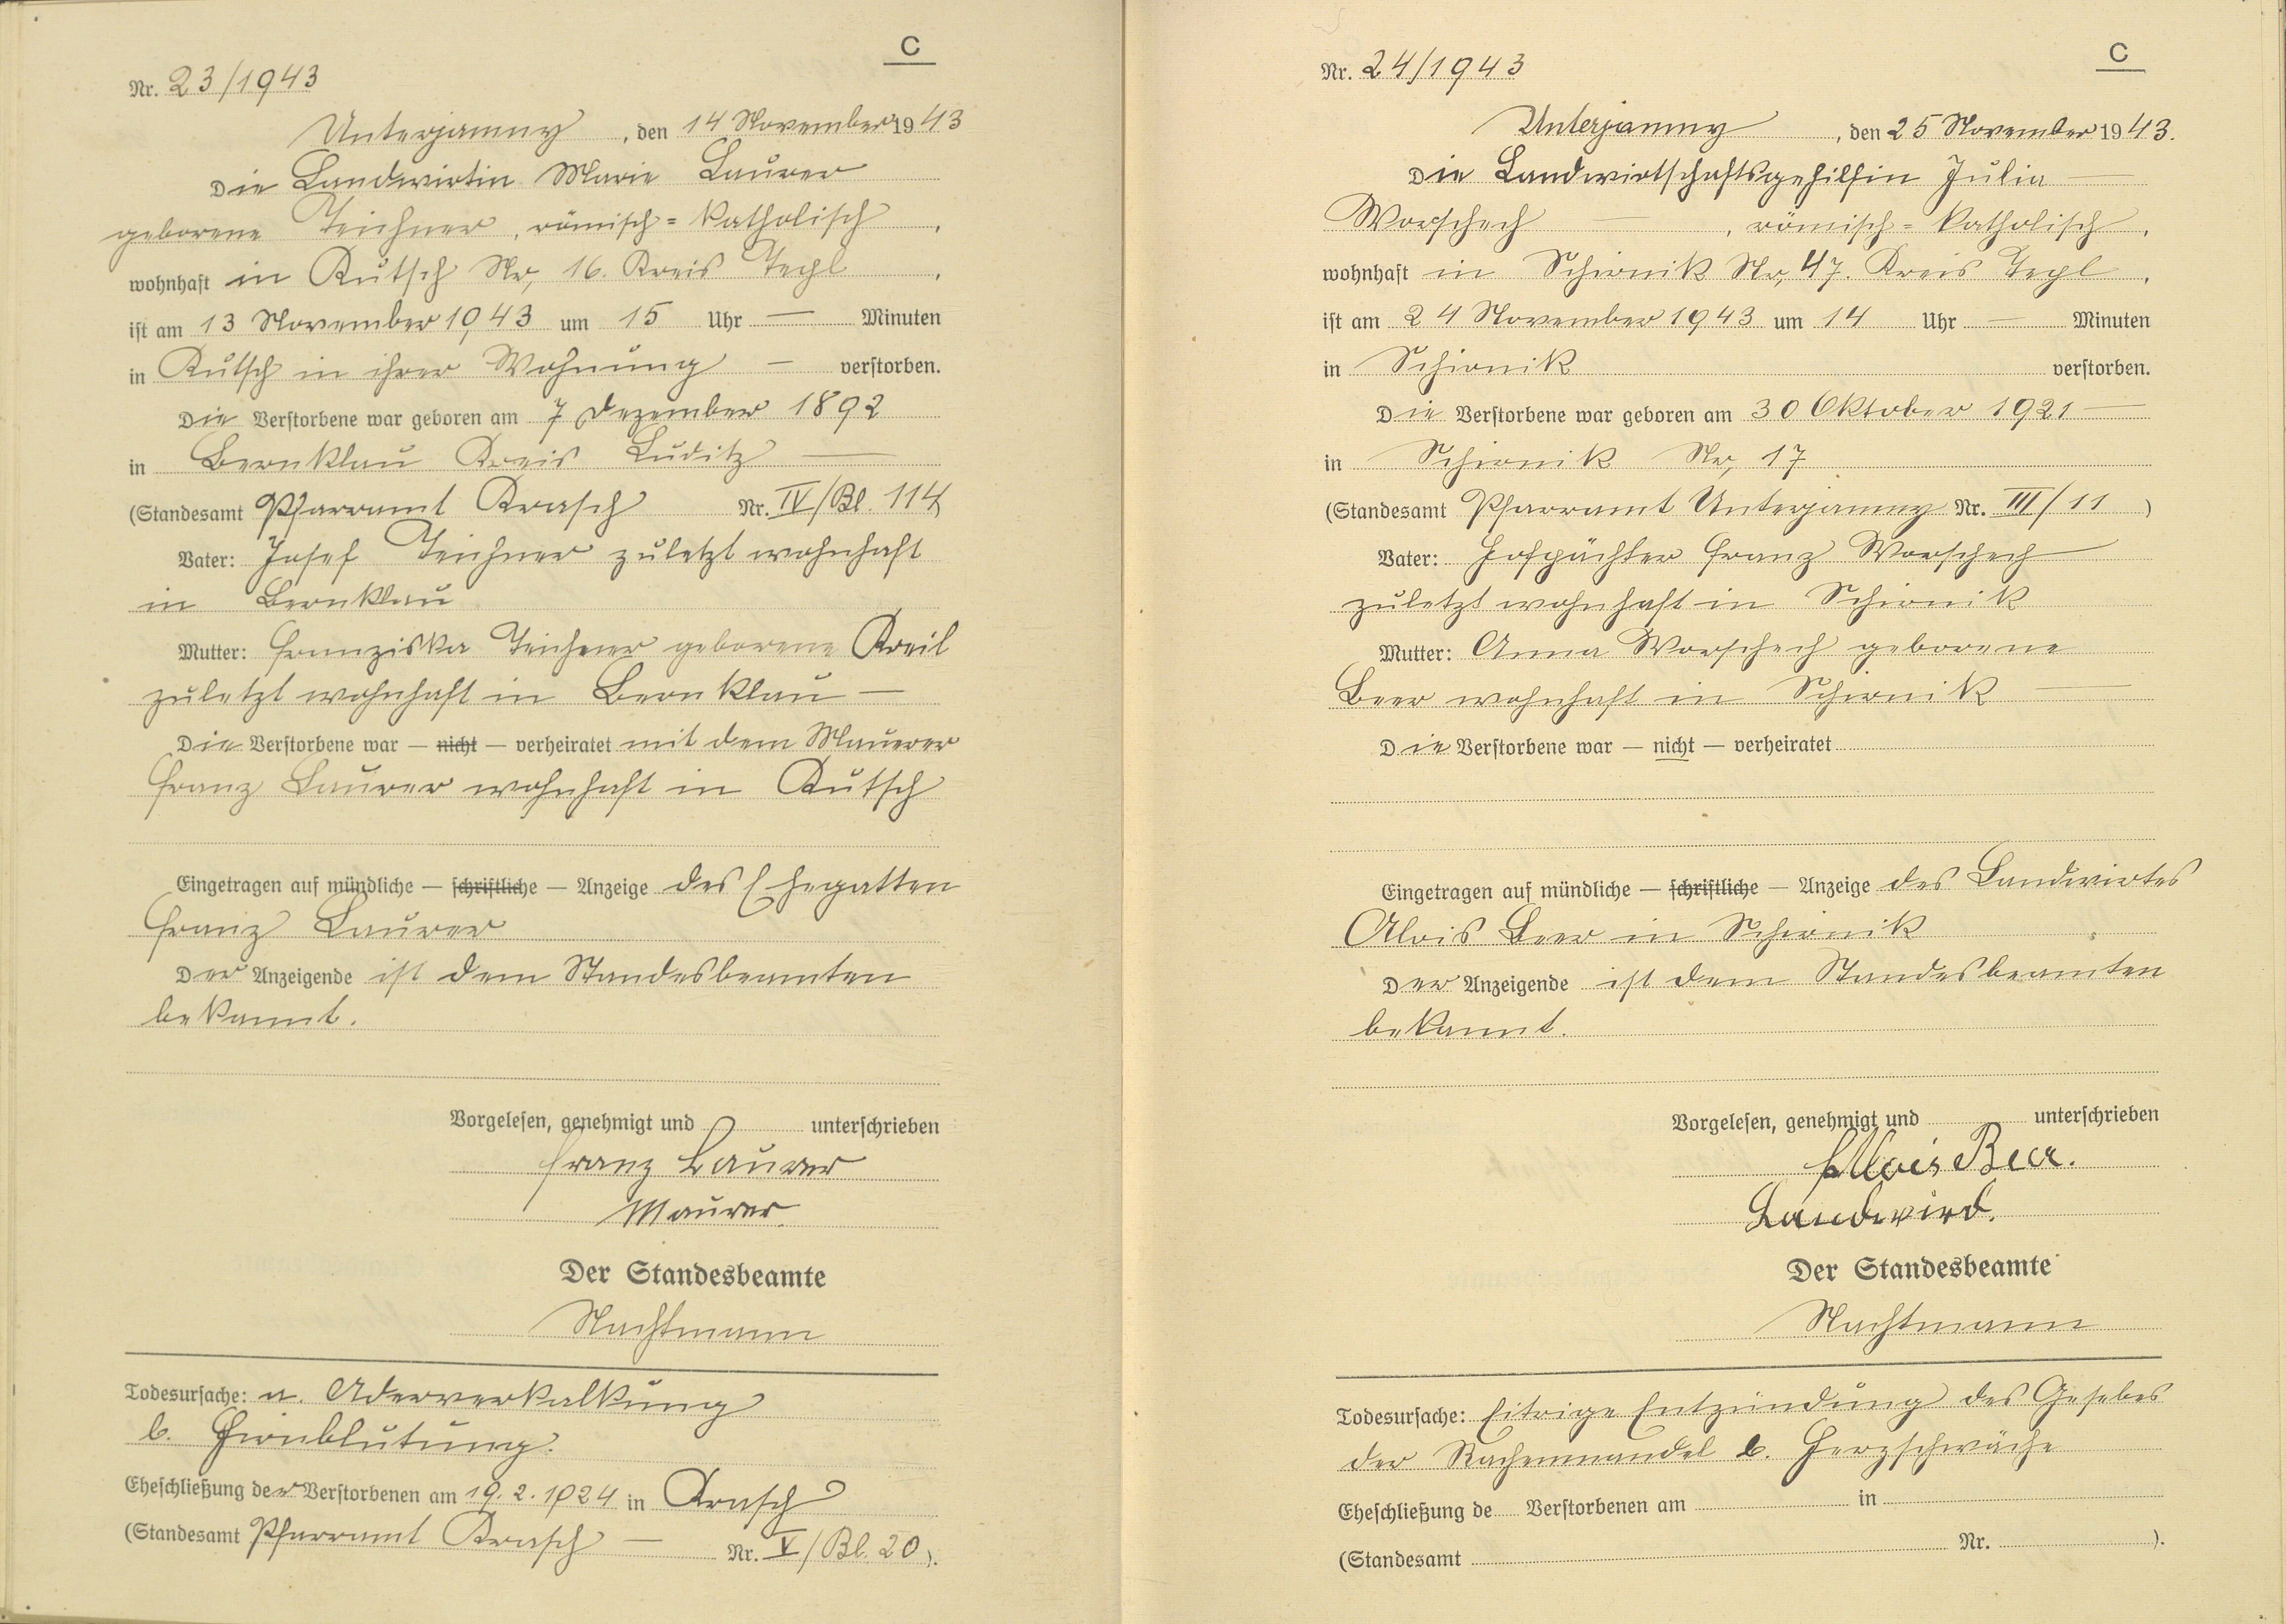 C
Nr. 23/1943
Unterjamny, den 14 November 1943
Die Landwirtin Marie Laurer
geborene Teichner, römisch=katholisch,
wohnhaft in Kutsch Nr, 16. Kreis Tepl,
ist am 13 November 1943 um 15 Uhr — Minuten
in Kutsch in ihrer Wohnung — verstorben.
Die Verstorbene war geboren am 7 Dezember 1892
in Bernklau Kreis Luditz —
(Standesamt Pfarramt Krasch Nr. IV/Bl. 114
Vater: Josef Teichner zuletzt wohnhaft
in Bernklau
Mutter: Franziska Teichner geborene Kreil
zuletzt wohnhaft in Bernklau —
Die Verstorbene war — nicht — verheiratet mit dem Maurer
Franz Laurer wohnhaft in Kutsch
Eingetragen auf mündliche — schriftliche — Anzeige des Ehegatten
Franz Laurer
Der Anzeigende ist dem Standesbeamten
bekannt.
Vorgelesen, genehmigt und unterschrieben
Franz Laurer
Maurer
Der Standesbeamte
Nachtmann
Todesursache: a. Aderverkalkung
b. Hirnblutung.
Eheschließung der Verstorbenen am 19. 2. 1924 in Krasch
(Standesamt Pfarramt Krasch — Nr. V/Bl. 20).
C
Nr. 24/1943
Unterjamny, den 25 November 1943.
Die Landwirtschaftsgehilfin Julia —
Worschech —, römisch=katholisch,
wohnhaft in Schirnik Nr, 47. Kreis Tepl,
ist am 24 November 1943 um 14 Uhr — Minuten
in Schirnik verstorben.
Die Verstorbene war geboren am 30 Oktober 1921 —
in Schirnik Nr, 17
(Standesamt Pfarramt Unterjamny Nr. III/11)
Vater: Hofpächter Franz Worschech
zuletzt wohnhaft in Schirnik
Mutter: Anna Worschech geborene
Beer wohnhaft in Schirnik —
Die Verstorbene war — nicht — verheiratet
Eingetragen auf mündliche — schriftliche — Anzeige des Landwirtes
Alois Beer in Schirnik
Der Anzeigende ist dem Standesbeamten
bekannt.
Vorgelesen, genehmigt und unterschrieben
Alois Beer.
Landwird.
Der Standesbeamte
Nachtmann
Todesursache: Eitrige Entzündung des Gesebes
der Rachenmandel b. Herzschwäche
Eheschließung de Verstorbenen am in
(Standesamt Nr. ).